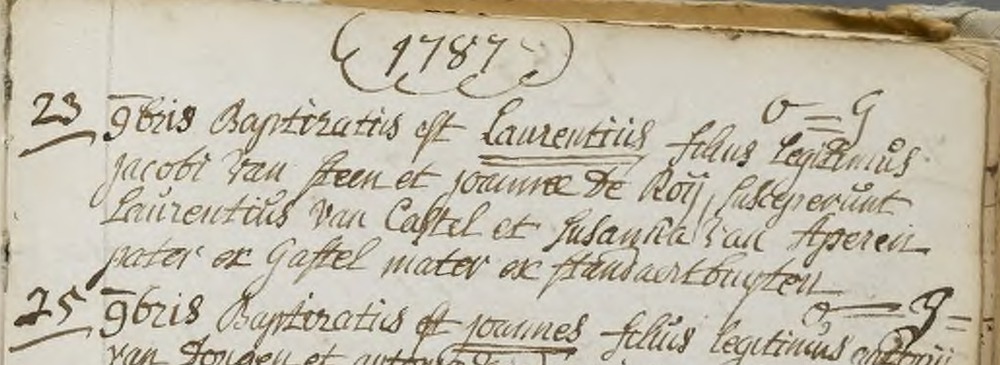 1787
o = 9
23 9bris Baptizatus est Laurentius filius legitimus
jacobi van steen et joannæ de Roij, susceperunt
Laurentius van Castel et Susanna van Aperen
pater ex Gastel mater ex standaertbuyten
o — 9 =
25 9bris Baptizatus est joannes filius legitimus
van Dongen et